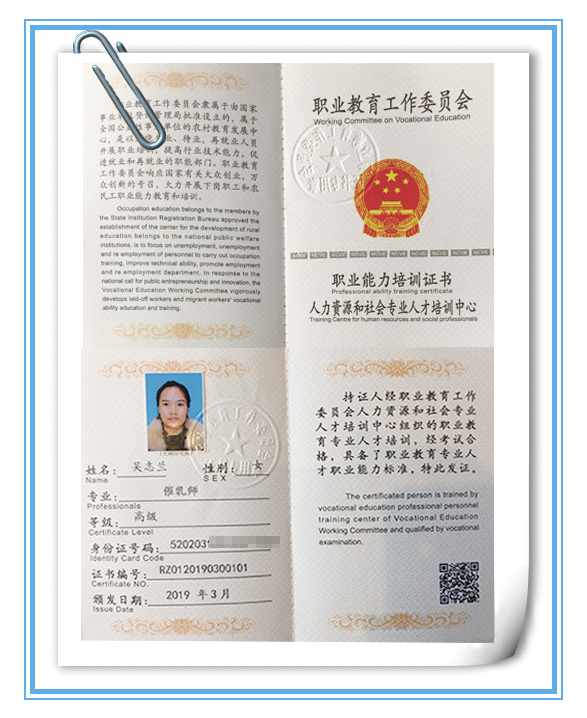 职业教育工作委员会隶属于由国家
事业单位登记管理局批准设立的，属于
全国公益性事业单位的农村教育发展中
心，是以围绕失业、待业，再就业人员
开展职业培训，提高行业技术能力，促
进就业和再就业的职能部门。职业教育
工作委员会响应国家有关大众创业，万
众创新的号召，大力开展下岗职工和农
民工职业能力教育和培训。
Occupation education belongs to the members by
the State Institution Registration Bureau approved the
establishment of the center for the development of rural
education belongs to the national public welfare
institutions, is to focus on unemployment, unemployment
and re employment of personnel to carry out occupation
training, improve technical ability, promote employment
and re employment department. In response to the
national call for public entrepreneurship and innovation, the
Vocational Education Working Committee vigorously
develops laid-off workers and migrant workers' vocational
ability education and training.
职业教育工作委员会
Working Committee on Vocational Education
NCVE NCVE NCVE NCVE NCVE NCVE NCVE
职业能力培训证书
Professional ability training certificate
人力资源和社会专业人才培训中心
Training Centre for human resources and social professionals
姓名：吴志兰 性别：女
Name SEX
专业：催乳师
Professionals
等级：高级
Certificate Level
身份证号码：5202031
Identity Card Code
证书编号：RZ0120190300101
Certificate NO.
颁发日期：2019 年 3 月
Issue Date
持证人经职业教育工作
委员会人力资源和社会专业
人才培训中心组织的职业教
育专业人才培训，经考试合
格，具备了职业教育专业人
才职业能力标准，特此发证。
The certificated person is trained by
vocational education professional personnel
training center of Vocational Education
Working Committee and qualified by vocational
examination.